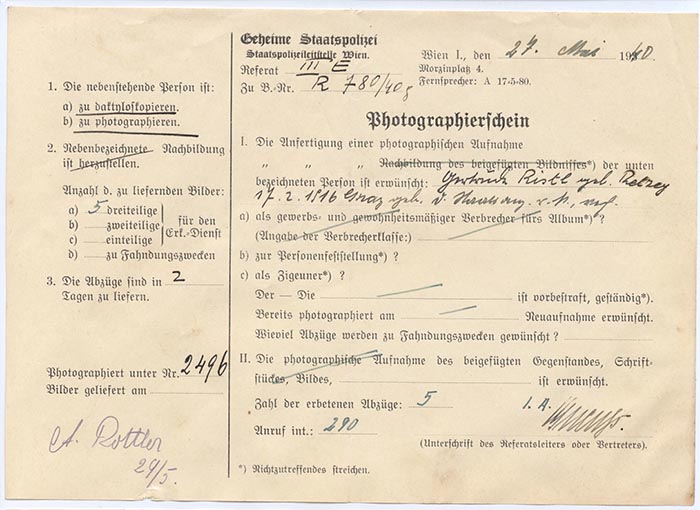 1. Die nebenstehende Person ist:
a) zu daktyloskopieren.
b) zu photographieren.
2. Nebenbezeichnete Nachbildung
ist herzustellen.
Anzahl d. zu liefernden Bilder:
a) 5 dreiteilige
b) zweiteilige
c) einteilige
für den
Erk.-Dienst
d) zu Fahndungszwecken
3. Die Abzüge sind in 2
Tagen zu liefern.
Photographiert unter Nr. 2496
Bilder geliefert am
A. Rottler
29/5.
Geheime Staatspolizei
Staatspolizeileitstelle Wien.
Referat III E
Zu B.-Nr. R 780/40g
Wien I., den 27. Mai 1940.
Morzinplatz 4.
Fernsprecher: A 17-5-80.
Photographierschein
I. Die Anfertigung einer photographischen Aufnahme
" " " Nachbildung des beigefügten Bildnisses*) der unten
bezeichneten Person ist erwünscht: Gertrude Ristl geb.
17. 2. 1916 Graz geb.
a) als gewerbs- und gewohnheitsmäßiger Verbrecher fürs Album*) ?
(Angabe der Verbrecherklasse:)
b) zur Personenfeststellung*) ?
c) als Zigeuner*) ?
Der — Die ist vorbestraft, geständig*).
Bereits photographiert am Neuaufnahme erwünscht.
Wieviel Abzüge werden zu Fahndungszwecken gewünscht ?
II. Die photographische Aufnahme des beigefügten Gegenstandes, Schrift-
stückes, Bildes, ist erwünscht.
Zahl der erbetenen Abzüge: 5 I. A.
Anruf int.: 290
(Unterschrift des Referatsleiters oder Vertreters).
*) Nichtzutreffendes streichen.